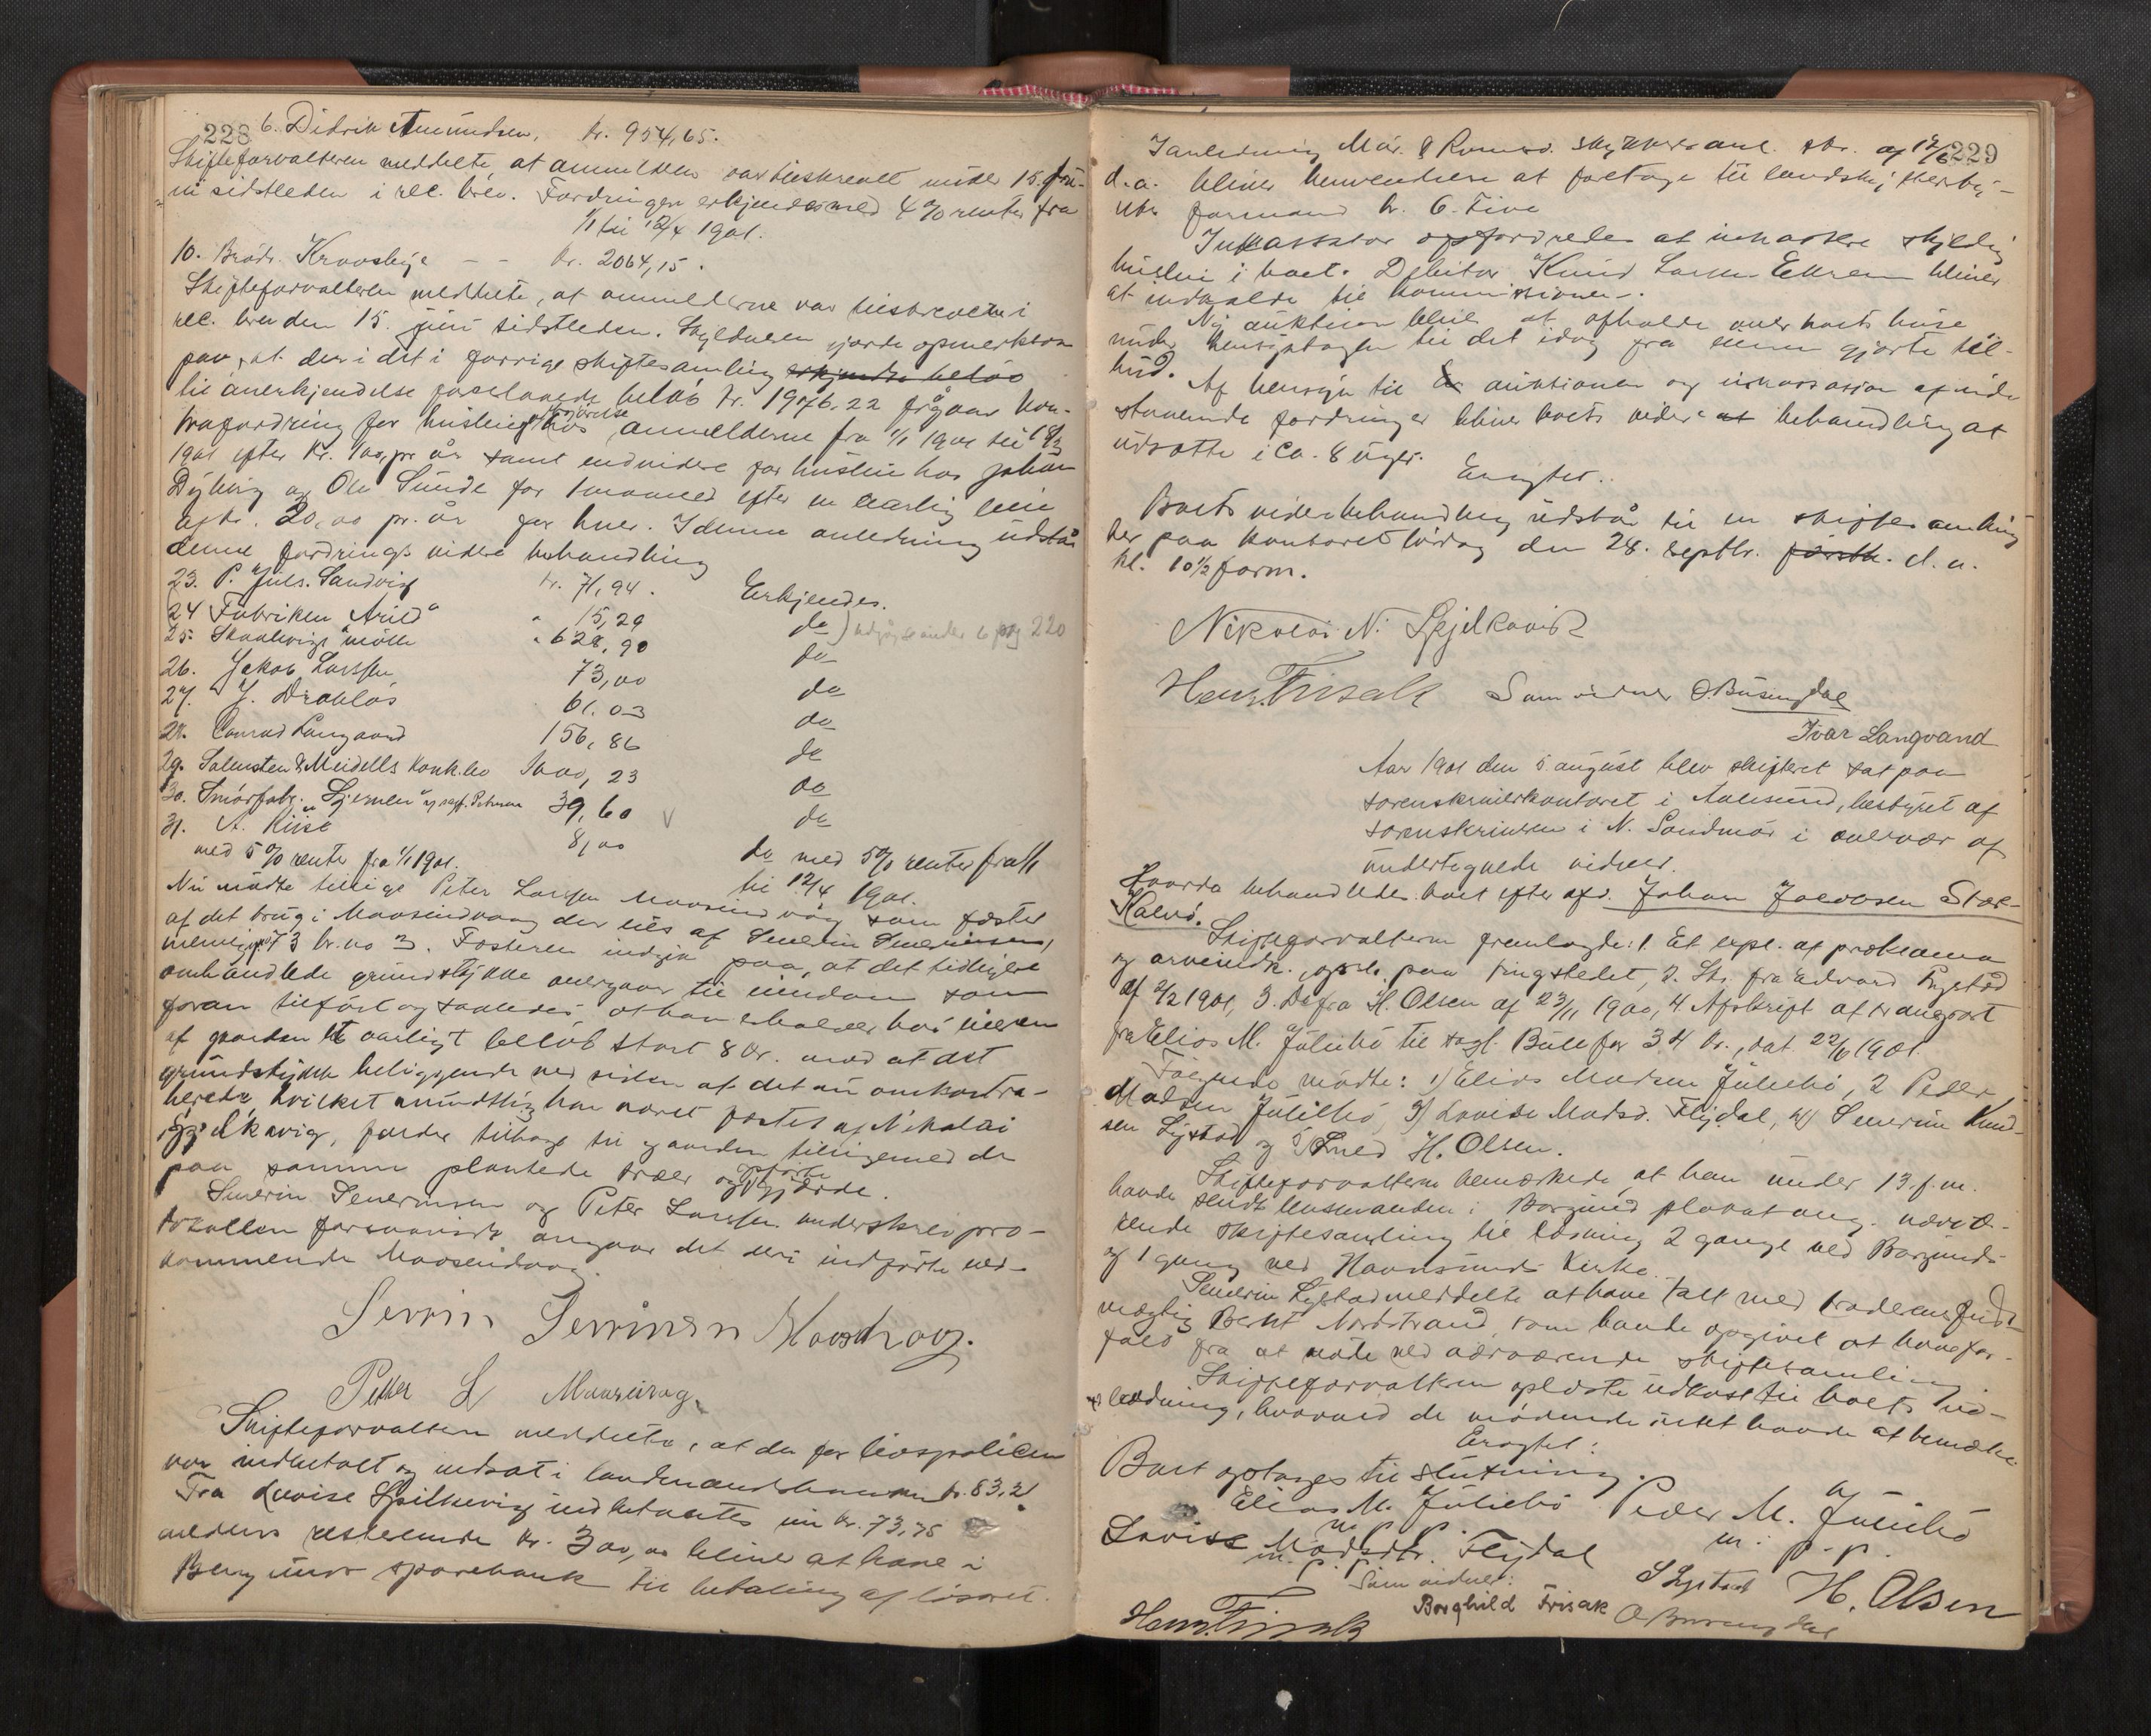 228
6. Didrik Amundsen. kr. 954,65.
Skifteforvalteren meddelte, at anmelderen var tilskrevet under 15. ju-
ni sidstleden i rec. brev. Fordringen erkjendes med 4 % renter fra
1/1 til 12/4 1901.
10. Brødr. Kravsbye - - kr. 2064,15.
Skifteforvalteren meddelte, at anmelderne var tilskrevet i
rec. brev den 15. juni sidstleden. Skyldneren gjorde opmerksom
paa, at der i det i forrige skiftesamling erkjendte beløb
til anerkjendelse foreslaaede beløb kr. 1976.22 frågaar kon-
trafordring for husleie hos anmelderne fra 1/1 1901 til
1901 efter kr. 100, pr år samt endvidere for husleie hos Johan
Dyberg og Ole Sunde for 1 maaned efter en aarlig leie
af kr. 20,00 pr. år for hver. I denne anledning udstår
denne fordrings videre behandling
23. P. Juls. Sandvig kr. 71,94. Erkjendes.
24 Fabriken Arild" " 15,29 do
25. Skodevigs mølle " 628,90 do
220
26. Jakob Larssen 73,00 do
27. J. Drabløs 61.03 do
28. Conrad Langaard 156,86 do
29. Salmsten & Meidells konk.bo 1600,23 do
30. Smørfabr. "Stjernen" 39,60 do
31. A. Kiise 8,00
med 5 % rente fra 1/1 1901. do med 5 % renter fra 1/1
til 12/4 1901.
Nu mødte tillige Peter Larssen Mooseidvåg som fæster
af det brug i Mooseidvaag der eies af Severin Severinsen,
73 br. no 3. Fæsteren indgik paa, at det tidligere
omhandlede grundstykke overgaar til eiendom som
foran tilført og saaledes at han erholder hos eieren
af gaarden et aarligt beløb stort 8 kr. mod at det
grundstykke beliggende ved siden af det nu omkontra-
herede, hvilket mundtlig har været fæstet af Nikolai
Spjelkavig, falder tilbage til gaarden tilligemed de
paa samme plantede træer og opførte gjærde.
Severin Severinsen og Peter Larssen underskrev pro-
tokollen forsaavidt angaar det deri indførte ved-
kommende Mooseidvaag.
Serrin Serrinsen Mooshog.
Petter L Mooseivag.
Skifteforvalteren meddelte, at der for livspolicen
var indbetalt og indsat i landmandsbanken kr. 83,21
Fra Lovise Spilkevig indbetaltes nu kr. 73,75
resterende kr. 300,00 bliver at have i
Borgunds sparebank til betaling af løsøret.
229
I anledning Mør. & Romsd. anl. skr. af 12/6
d.a. bliver henvendelse at foretage til
formand hr. O. Five
Inkassator opfordredes at inkassere skyldig
husleie i boet. Debitor Knud Larsen Ekrem bliver
at indkalde til kommissionen.
Ny auktion bliver at afholde over boets huse
under hensyntagen til det idag fra eieren gjorte til-
bud. Af hensyn til auktionen og inkassasjon af ude
staaende fordringer bliver boets videre at behandling at
udsætte i ca. 8 uger.
Eragtet.
Boets videre behandling udstår til en skiftesamling
her paa kontoret lørdag den 28. septbr. førstk. d. a.
kl. 10½ form.
Nikolai N. Spjelkavik
Henr. Frisak Som vidner O. Busengdal
Ivar Langvand
Aar 1901 den 5. august blev skifteret sat paa
sorenskriverkontoret i Aalesund, bestyret af
sorenskriveren i N. Søndmør i overvær af
undertegnede vidner.
Hvorda behandledes boet efter afd. Johan Jacobsen Stor-
Kalvø.
Skifteforvalteren fremlagde: 1. Et expl. af proklama
og arveindk., opsl. paa tingstedet, 2. Skr. fra Edvard Rystad
af 2/2 1901, 3. Do fra H. Olsen af 23/11 1900, 4 Afskrift af transport
fra Elias M. Juliebø til sagf. Bull for 34 kr., dat. 22/6 1901.
Følgende mødte: 1) Elias Madsen Juliebø, 2 Peder
Madsen Juliebø, 3) Lovise Madsd. Flydal, 4) Severin Knud-
sen Lystad og 5/ Lued H. Olsen.
Skifteforvalteren bemærkede at han under 13. f. m.
havde sendt lensmanden i Borgund plakat ang. nærvæ-
rende skiftesamling til læsning 2 gange ved Borgunds
og 1 gang ved Havnsunds kirke.
Severin Lystad meddelte at have talt med fraderens fuld-
mægtig Bernt Nordstrand, som havde opgivet at have for-
fald fra at møde ved nærværende skiftesamling
Skifteforvalteren oplæste udkast til boets ud-
lodning, hvorved de mødende intet havde at bemærke
Eragtet:
Boet optages til slutning.
Elias M. Juliebø Peder M. Juliebø
m. p. p. m. p. p.
Lovise Madsdtr. Flydal
m. p. p.
S Lystad H. Olsen
Som vidner:
Henr. Frisak Borghild Frisak O Busengdal